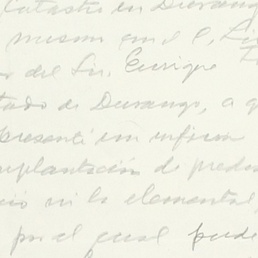 Catastro en Durango
mismo en el C. Li
del Sr. Enrique
tado de Durango, a q
presenté un inform
mplantación de predia
cio ni la elemental
por el cual puede